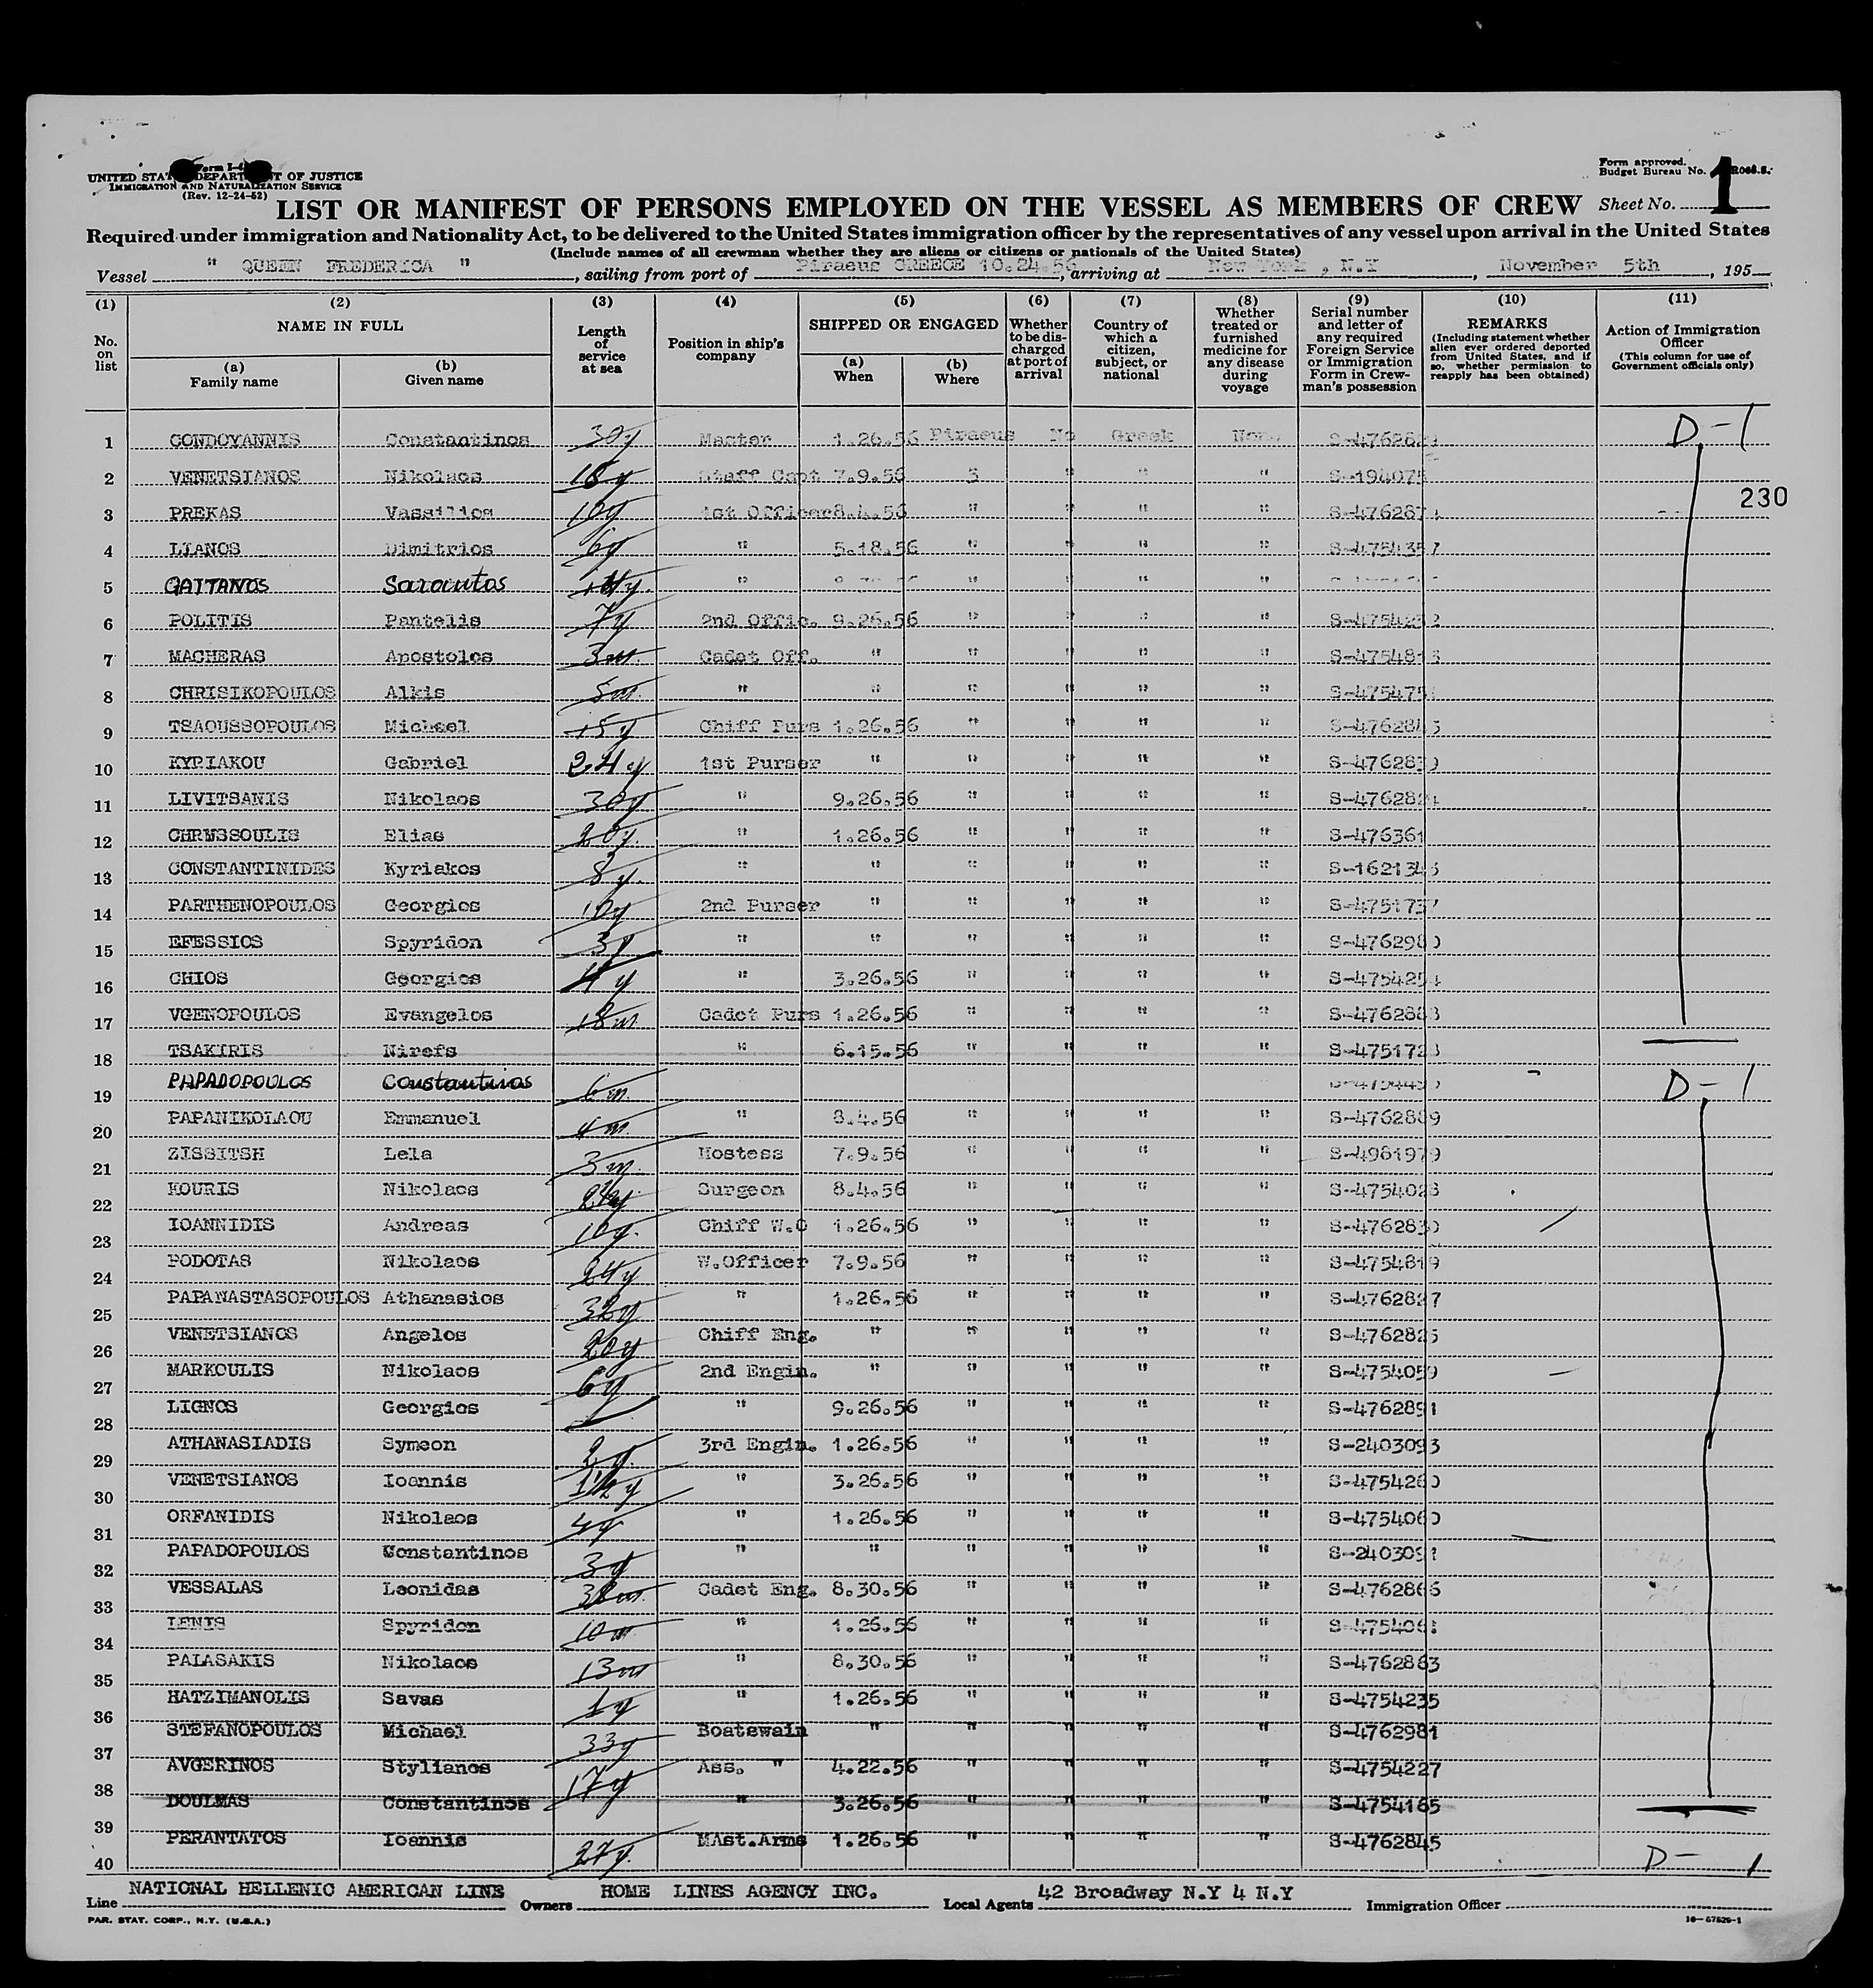 Form I-4
UNITED STATES DEPARTMENT OF JUSTICE
IMMIGRATION AND NATURALIZATION SERVICE
(Rev. 12-24-52)
Form approved.
Budget Bureau No.
LIST OR MANIFEST OF PERSONS EMPLOYED ON THE VESSEL AS MEMBERS OF CREW Sheet No. 1
Required under immigration and Nationality Act, to be delivered to the United States immigration officer by the representatives of any vessel upon arrival in the United States
(Include names of all crewman whether they are aliens or citizens or nationals of the United States)
Vessel " QUEEN FREDERICA ", sailing from port of Piraeus GREECE 10.24.56, arriving at New York , N.Y, November 5th, 195
(1) (2) (3) (4) (5) (6) (7) (8) (9) (10) (11)
No. on list NAME IN FULL (a) Family name (b) Given name Length of service at sea Position in ship's company SHIPPED OR ENGAGED (a) When (b) Where Whether to be discharged at port of arrival Country of which a citizen, subject, or national Whether treated or furnished medicine for any disease during voyage Serial number and letter of any required Foreign Service or Immigration Form in Crewman's possession REMARKS (Including statement whether alien ever ordered deported from United States, and if so, whether permission to reapply has been obtained) Action of Immigration Officer (This column for use of Government officials only)
1 CONDOYANNIS Constantinos 30y Master 1.26.56 Piraeus No Greek None D-1
2 VENETSIANOS Nikolaos 18y Staff Capt 7.9.56 3 " " " S-194075
230
3 PREKAS Vassilios 10y 1st Officer 8.4.56 " " " "
4 LIANOS Dimitrios 6y " 5.18.56 " " " " S-4754357
5 GAITANOS Sarantos " " " " "
6 POLITIS Pantelis 7y 2nd Offic. 9.26.56 " " " "
7 MACHERAS Apostolos 3m. Cadet Off. " " " " "
8 CHRISIKOPOULOS Alkis 8m. " " " " " "
9 TSAOUSSOPOULOS Michael 15y Chiff Purs 1.26.56 " " " "
10 KYRIAKOU Gabriel 24y 1st Purser " " " " " S-4762839
11 LIVITSANIS Nikolaos 30y " 9.26.56 " " " "
12 CHRWSSOULIS Elias 20y. " 1.26.56 " " " " S-476361
13 CONSTANTINIDES Kyriakos 8y. " " " " " "
14 PARTHENOPOULOS Georgios 10y 2nd Purser " " " " " S-4751737
15 EFESSIOS Spyridon 3y " " " " " " S-4762980
16 CHIOS Georgios 4y " 3.26.56 " " " " S-4754254
17 VGENOPOULOS Evangelos 18m Cadet Purs 1.26.56 " " " " S-4762883
18 TSAKIRIS Nirefs " 6.15.56 " " " " S-4751723
19 PAPADOPOULOS Constantinos 6m. D-1
20 PAPANIKOLAOU Emmanuel 4m. " 8.4.56 " " " " S-4762889
21 ZISSITSH Lela 3m. Hostess 7.9.56 " " " " S-4981979
22 KOURIS Nikolaos Surgeon 8.4.56 " " " " S-4754028
23 IOANNIDIS Andreas 10y. Chiff W.O 1.26.56 " " " " S-4762830
24 PODOTAS Nikolaos 24y W.Officer 7.9.56 " " " " S-4754819
25 PAPANASTASOPOULOS Athanasios 32y " 1.26.56 " " " " S-4762827
26 VENETSIANOS Angelos 20y Chiff Eng. " " " " " S-4762825
27 MARKOULIS Nikolaos 6y 2nd Engin. " " " " " S-4754059
28 LIGNOS Georgios " 9.26.56 " " " " S-4762891
29 ATHANASIADIS Symeon 2y. 3rd Engin. 1.26.56 " " " " S-2403093
30 VENETSIANOS Ioannis 1½y " 3.26.56 " " " " S-4754260
31 ORFANIDIS Nikolaos 4y " 1.26.56 " " " " S-4754060
32 PAPADOPOULOS Constantinos 3y " " " " " " S-2403091
33 VESSALAS Leonidas Cadet Eng. 8.30.56 " " " " S-4762866
34 LENIS Spyridon 10m " 1.26.56 " " " "
35 PALASAKIS Nikolaos 13m " 8.30.56 " " " " S-4762863
36 HATZIMANOLIS Savas 1y " 1.26.56 " " " " S-4754235
37 STEFANOPOULOS Michael 33y Boatswain " " " " " S-4762981
38 AVGERINOS Stylianos 17y Ass. " 4.22.56 " " " " S-4754227
39 DOULMAS Constantinos " 3.26.56 " " " " S-4754165
40 PERANTATOS Ioannis 27y. MAst.Arms 1.26.56 " " " " S-4762845 D- 1
Line NATIONAL HELLENIC AMERICAN LINE Owners HOME LINES AGENCY INC. Local Agents 42 Broadway N.Y 4 N.Y Immigration Officer
PAR. STAT. CORP., N.Y. (U.S.A.)
16-67529-1